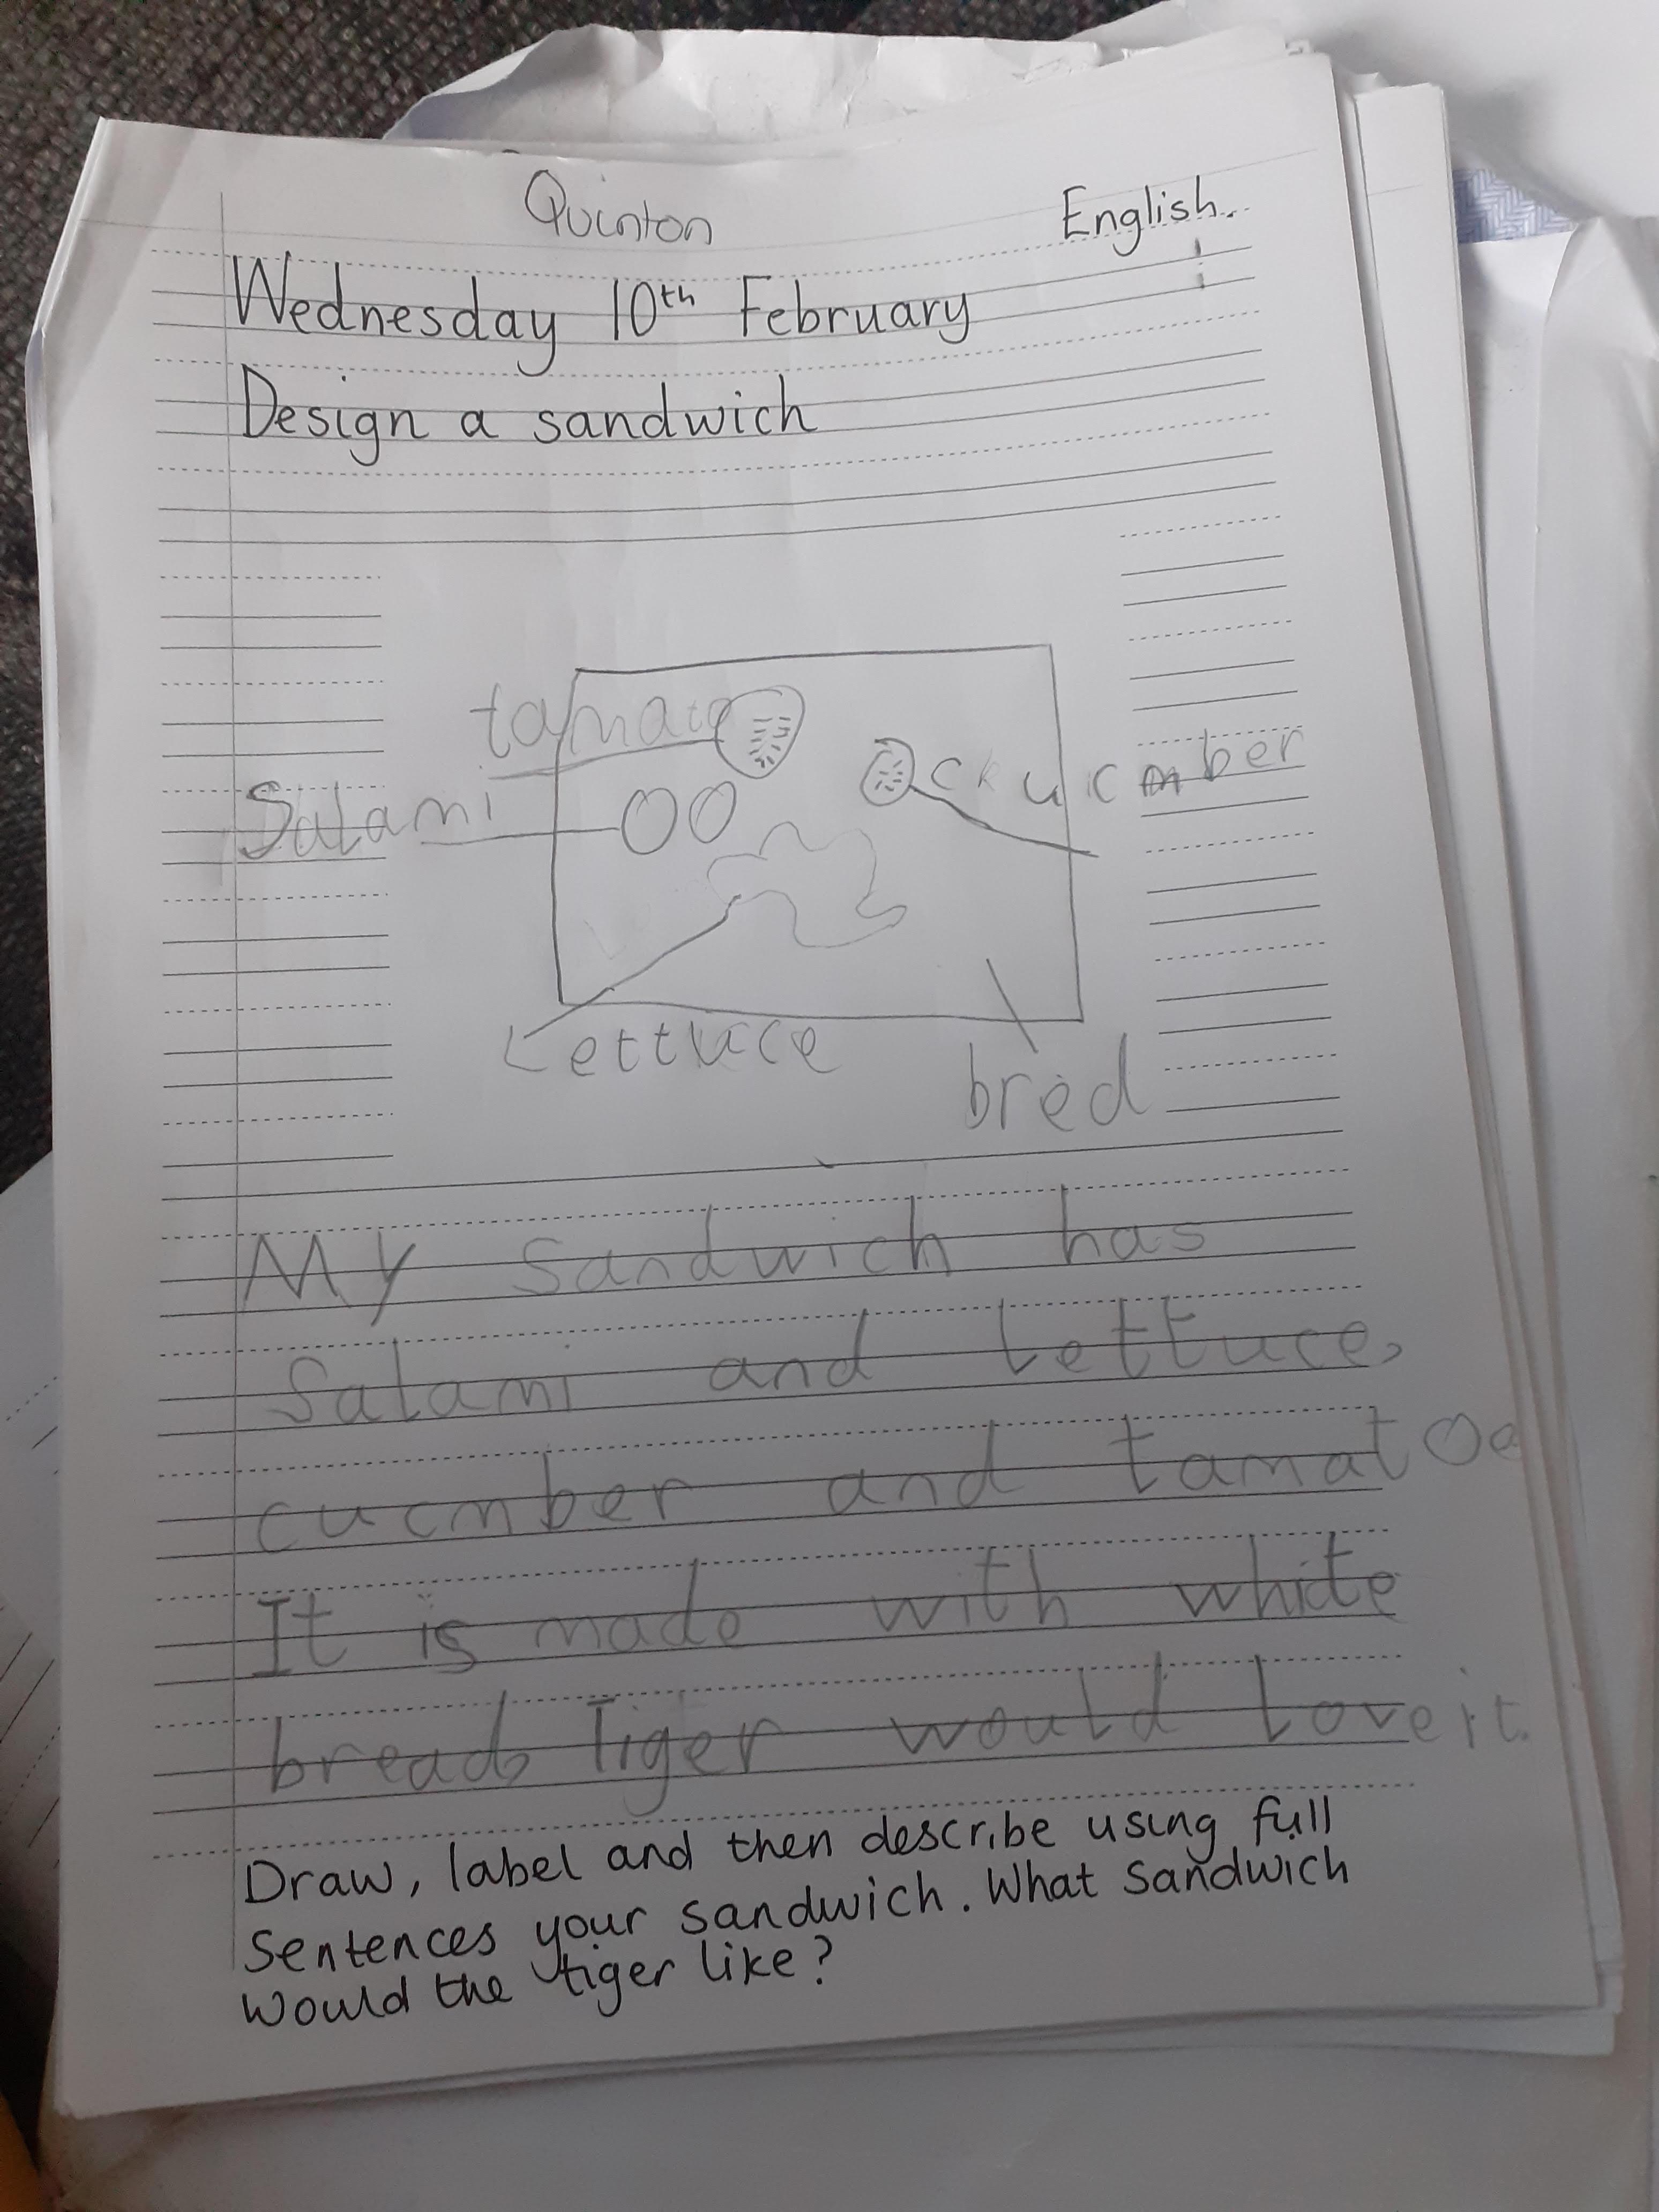 Quinton
English.
Wednesday 10th February
Design a sandwich
tamato
Salami
ckucmber
Lettuce
bred
My Sandwich has
Salami and Lettuce,
cucmber and tamatoe
It is made with white
bread, Tiger would Love it.
Draw, label and then describe using full
Sentences your sandwich. What Sandwich
Would the tiger like?